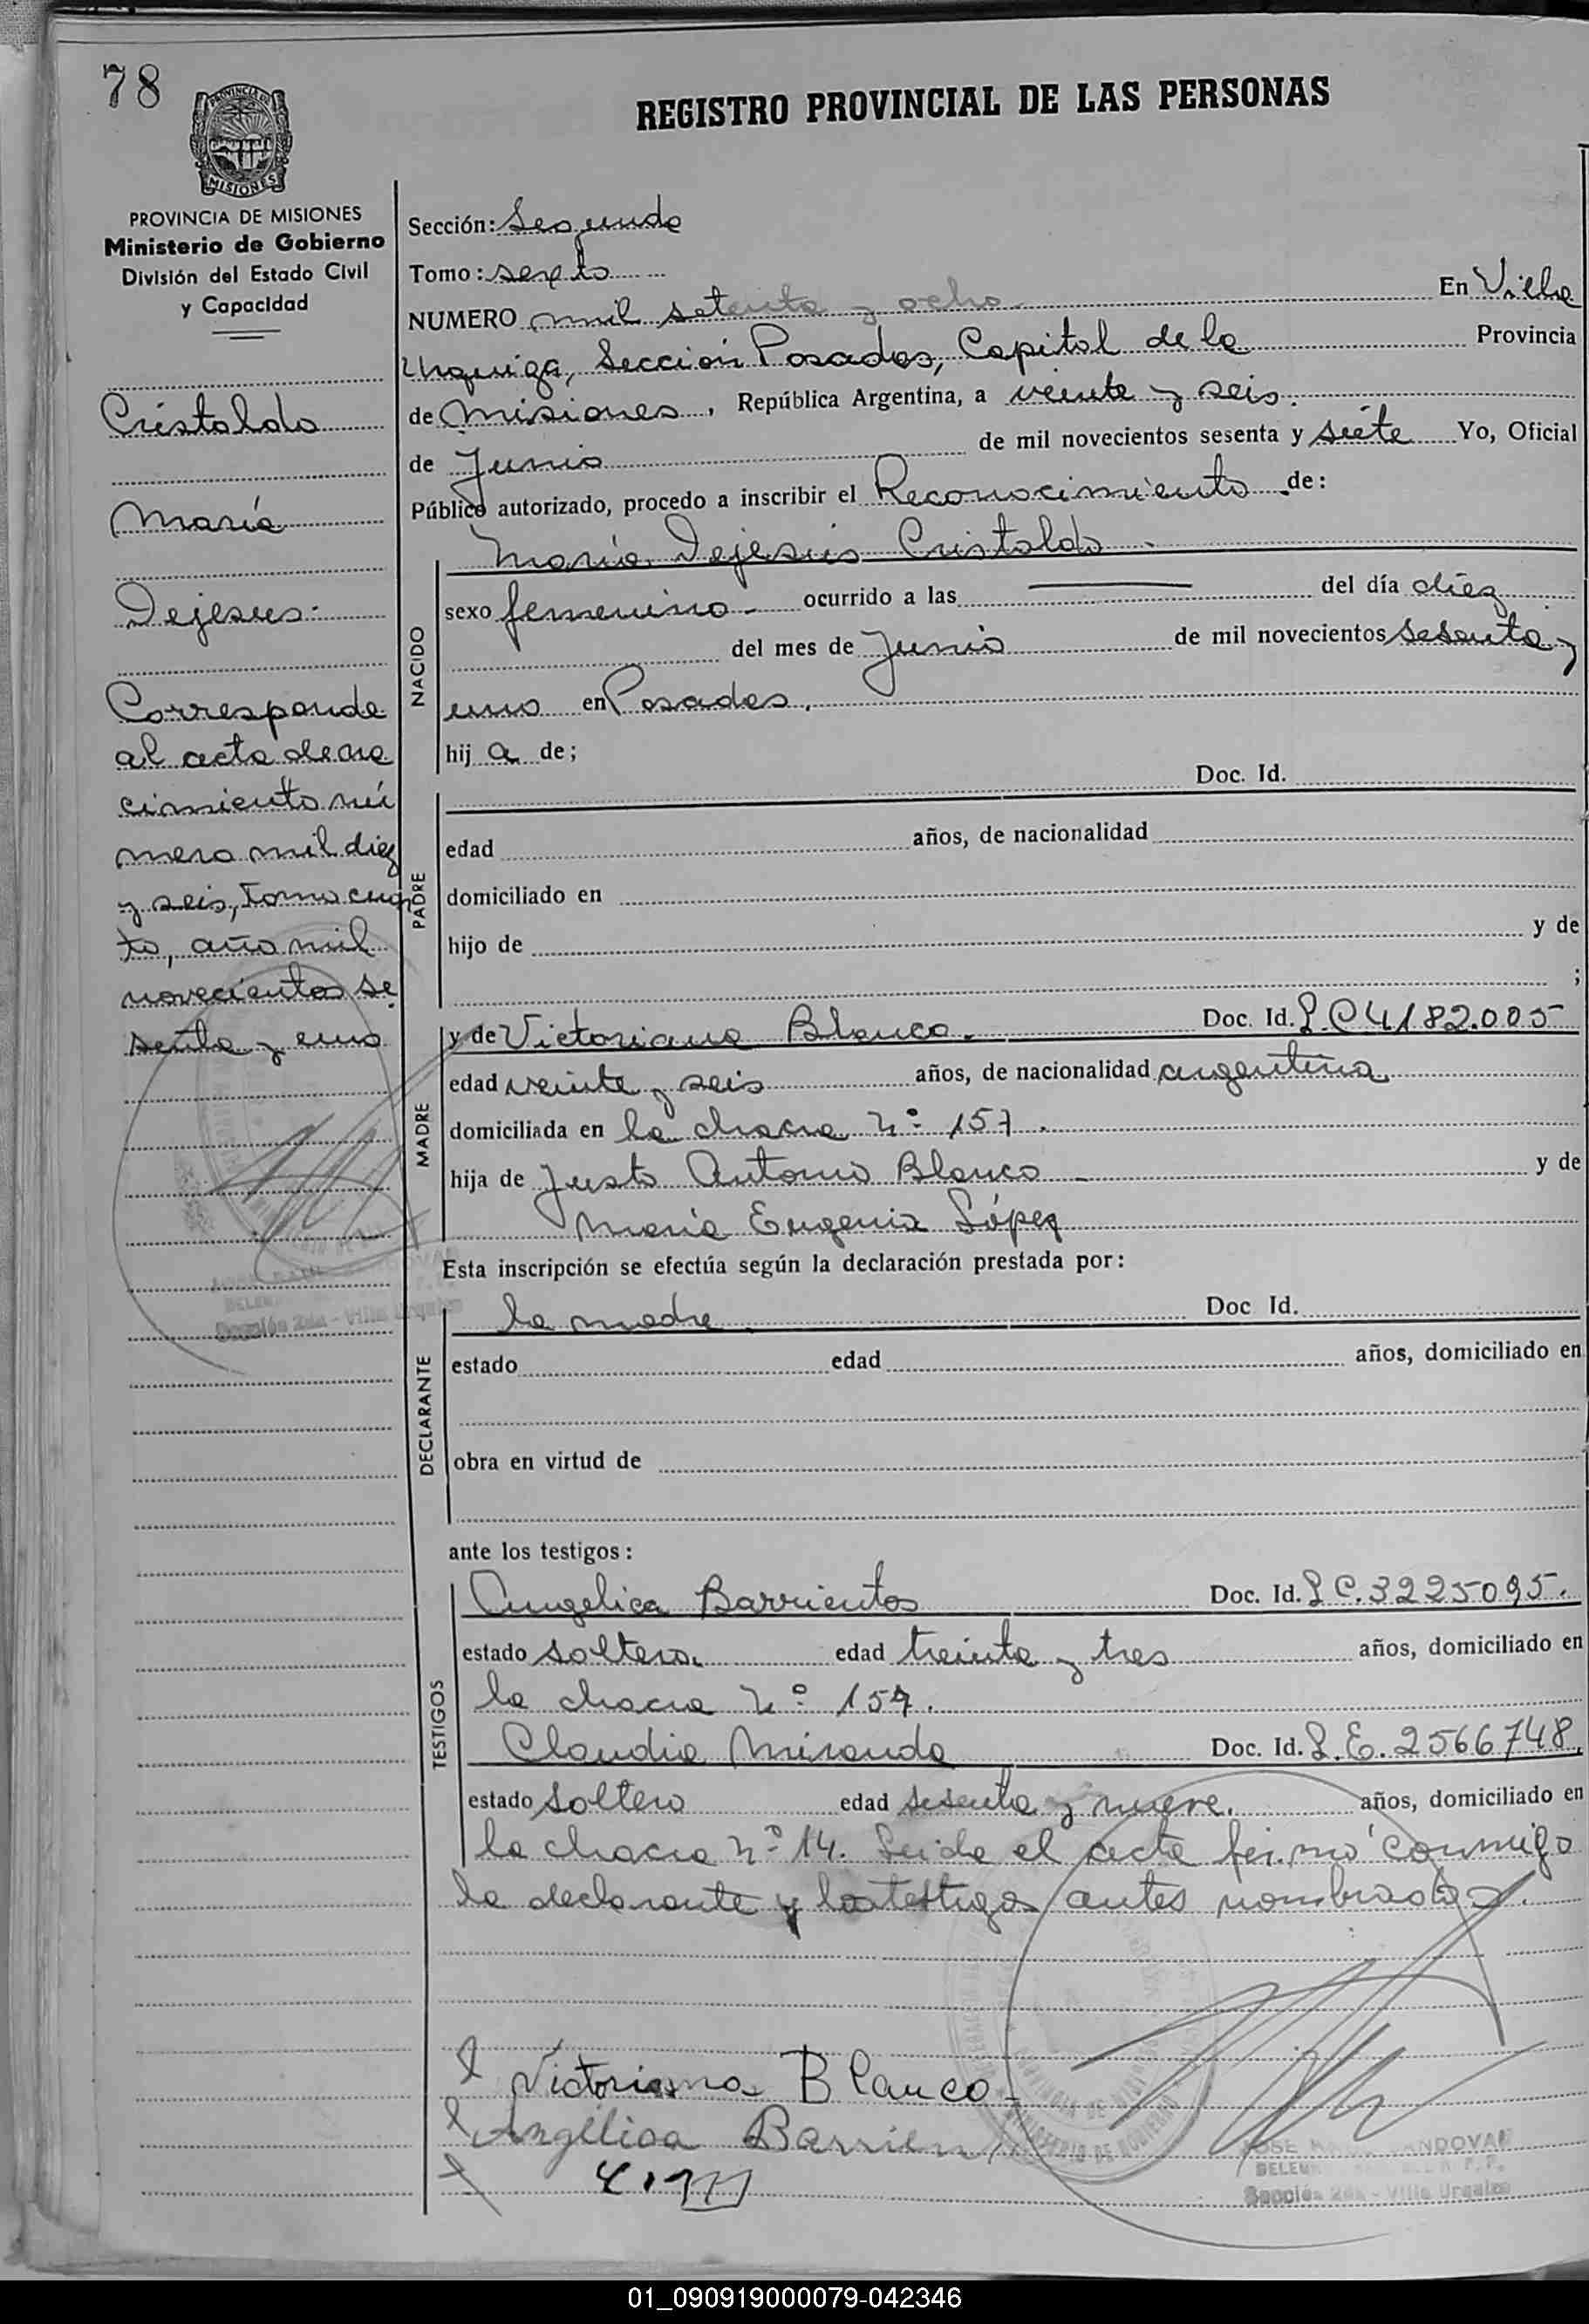 78
REGISTRO PROVINCIAL DE LAS PERSONAS
PROVINCIA DE MISIONES
Ministerio de Gobierno
División del Estado Civil
y Capacidad
Cristaldo
María
Dejesus.
Corresponde
al acta de na
cimiento nú
mero mil diez
y seis, Tomo cuar
to, año mil
novecientos se
senta y uno
Sección 2da - Villa Urquiza
Sección: Segunda
Tomo: sexto
NUMERO mil setenta y ocho En Villa
Urquiza, Sección Posadas, Capital de la Provincia
de Misiones, República Argentina, a veinte y seis.
de Junio de mil novecientos sesenta y siete Yo, Oficial
Público autorizado, procedo a inscribir el Reconocimiento de:
NACIDO
María Dejesús Cristaldo
sexo femenino ocurrido a las del día diez
del mes de Junio de mil novecientos sesenta y
uno en Posadas.
hij a de;
PADRE
Doc. Id.
edad años, de nacionalidad
domiciliado en
hijo de y de
;
MADRE
y de Victoriana Blanco. Doc. Id. L C 4182.005
edad veinte y seis años, de nacionalidad argentina
domiciliada en la chacra Nº 157.
hija de Justo Antonio Blanco y de
María Eugenia López
Esta inscripción se efectúa según la declaración prestada por:
DECLARANTE
la madre. Doc Id.
estado edad años, domiciliado en
obra en virtud de
ante los testigos:
TESTIGOS
Angelica Barrientos Doc. Id. L C. 3225095.
estado soltera edad treinta y tres años, domiciliado en
la chacra Nº 157.
Claudio Miranda Doc. Id. L.E. 2566748.
estado soltero edad sesenta y nueve. años, domiciliado en
la chacra Nº 14. Leida el acta firmó conmigo
la declarante y los testigos antes nombrados.
Victoriana Blanco
Angélica Barrien
C. M
SANDOVAL
Sección 2da - Villa Urquiza
01_090919000079-042346